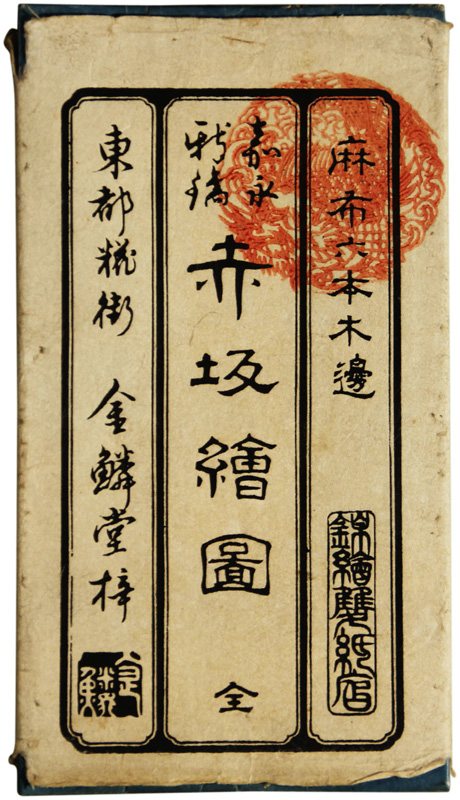 麻布六本木邊
錦繪雙紙店
嘉永
新鐫
赤坂繪圖 全
東都糀街 金鱗堂梓
金鱗